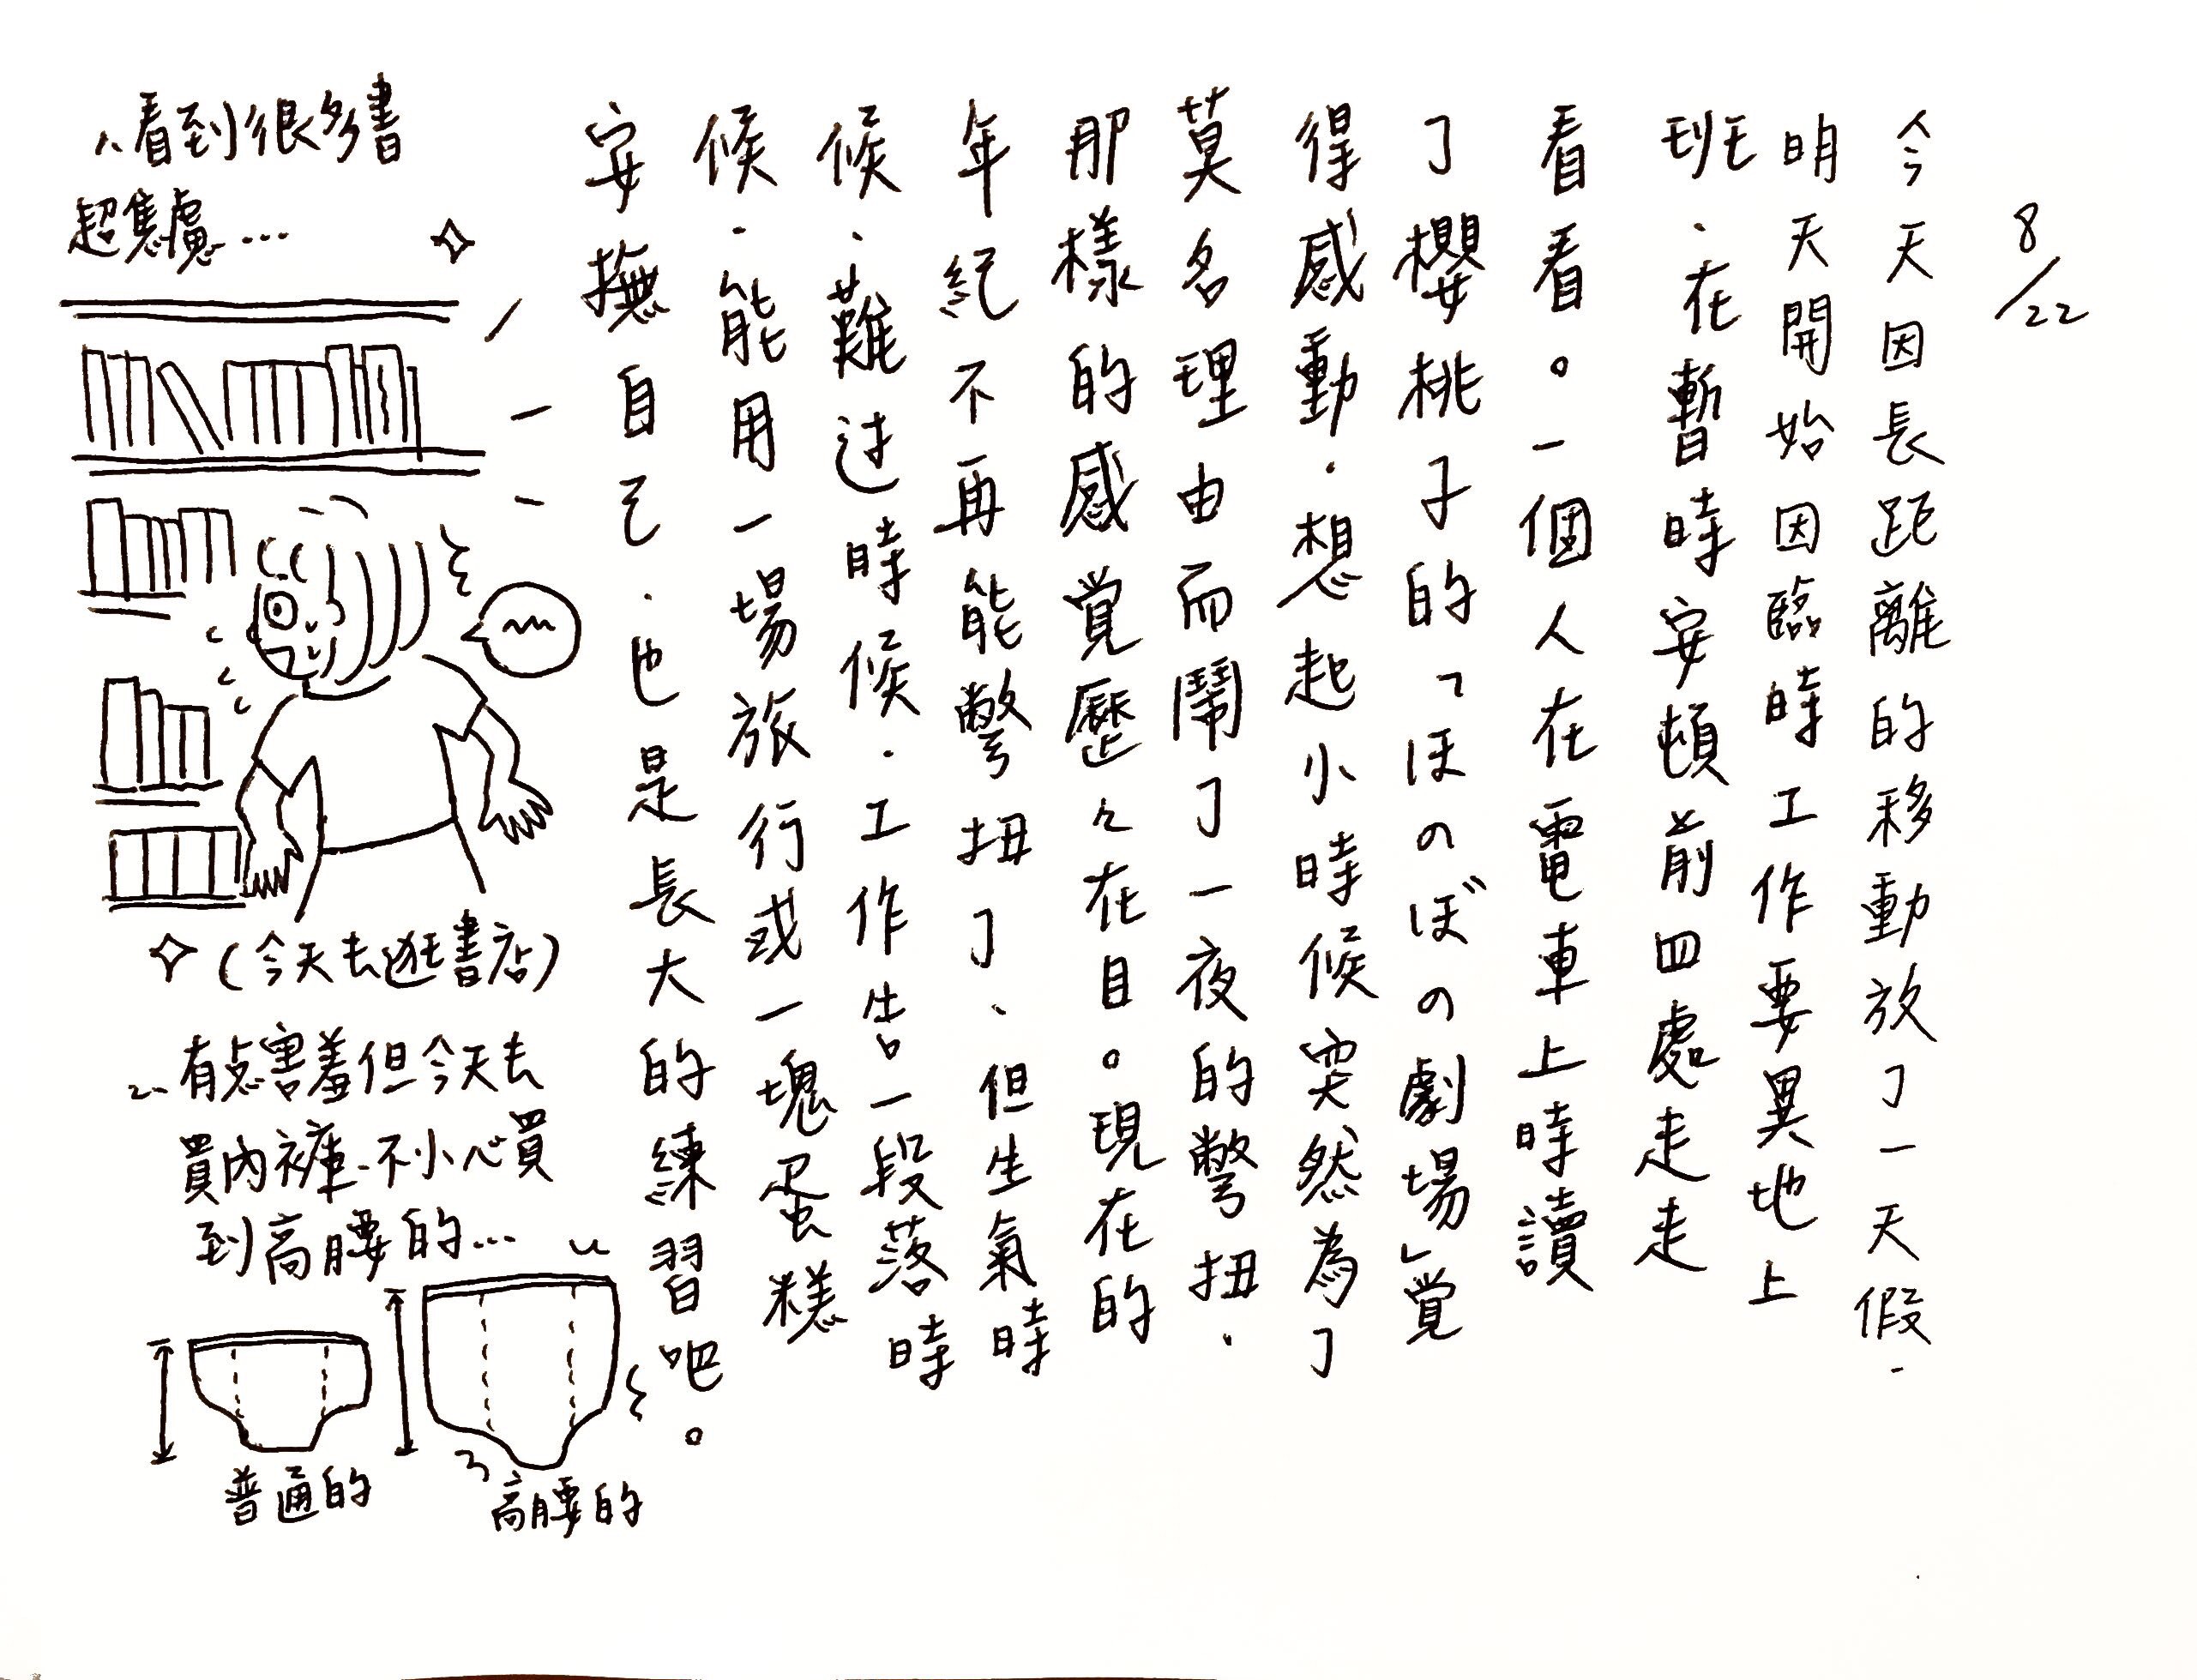 8/22
今天因長距離的移動放了一天假.
明天開始因臨時工作要異地上
班.在暫時安頓前四處走走
看看。一個人在電車上時讀
了櫻桃子的「ほのぼの劇場」覚
得感動.想起小時候突然為了
莫名理由而鬧了一夜的彆扭.
那樣的感覚歷々在目。現在的
年紀不再能彆扭了、但生氣時
候.難过時候.工作告一段落時
候.能用一場旅行或一塊蛋糕
安撫自己.也是長大的練習吧。
1.看到很多書
超焦慮...
(今天去逛書店)
2.有點害羞但今天去
買內褲.不小心買
到高腰的...
普通的
高腰的